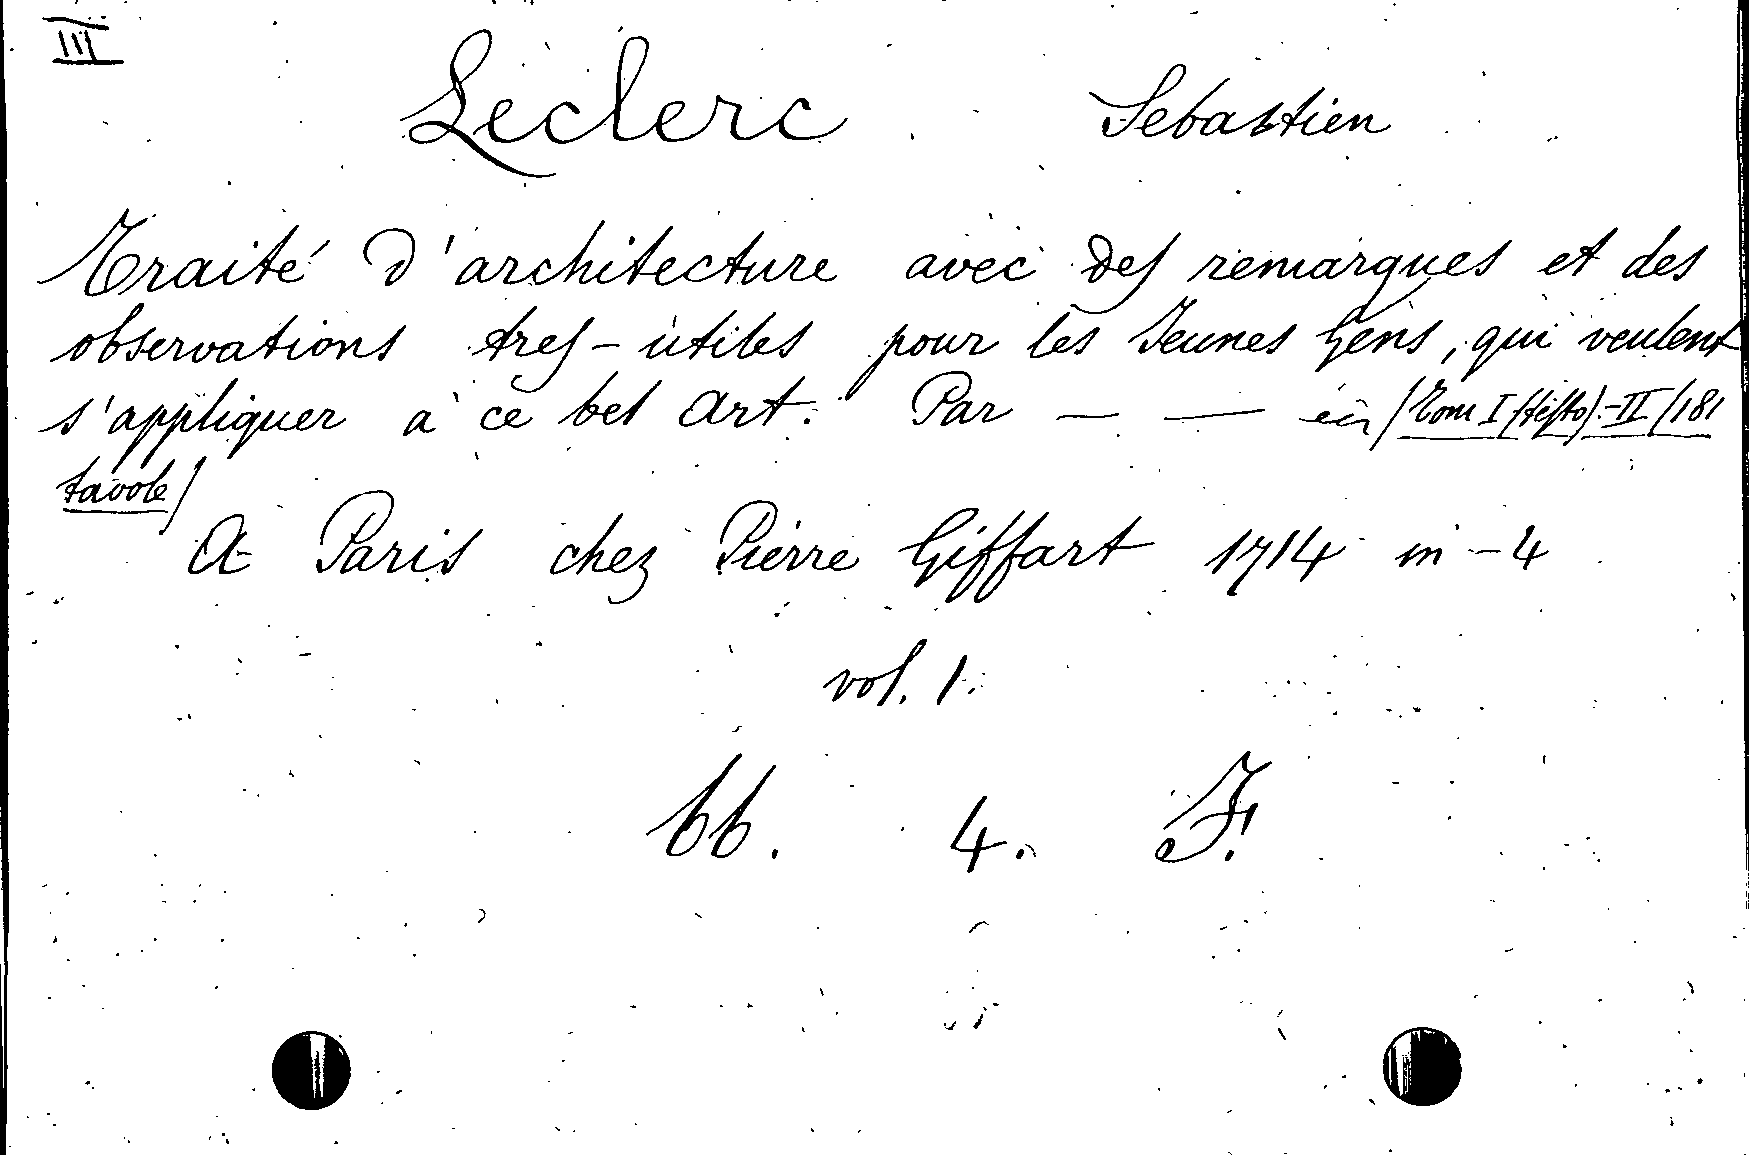 III
Leclerc Sebastien
Traité d'architecture avec des remarques et des
observations tres-utiles pour les Jeunes Gens, qui veulent
s'appliquer à ce bel Art. Par — — (Tom I (testo).-II (181
tavole)
A Paris chez Pierre Giffart 1714 in-4
vol. 1.
bb. 4. F.